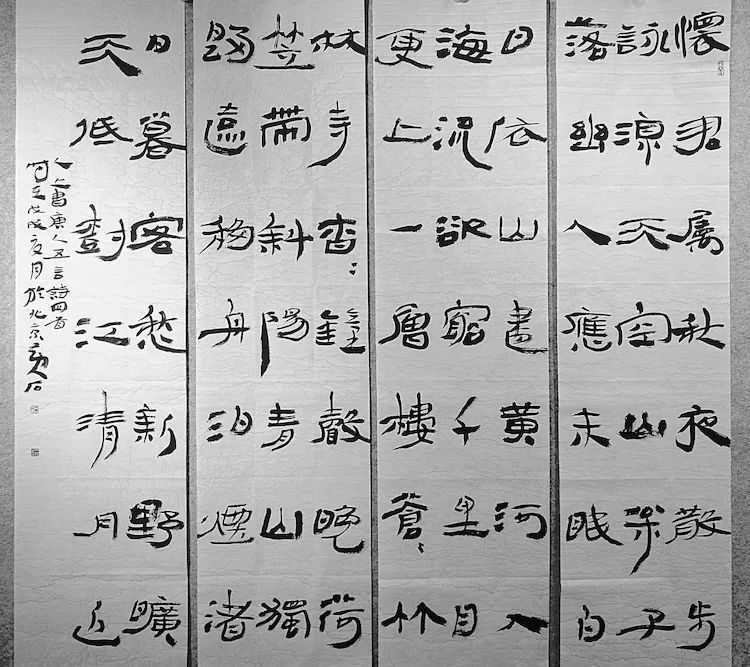 懷君屬秋夜散步
詠涼天空山松子
落幽人應未眠白
日依山盡黃河入
海流欲窮千里目
更上一層樓蒼〻竹
林寺杳〻鐘聲晚荷
笠帶斜陽青山獨
歸遠移舟泊煙渚
日暮客愁新野曠
天低對江清月近
人上書唐人五言詩四首
时在戊戌夏月於北京石